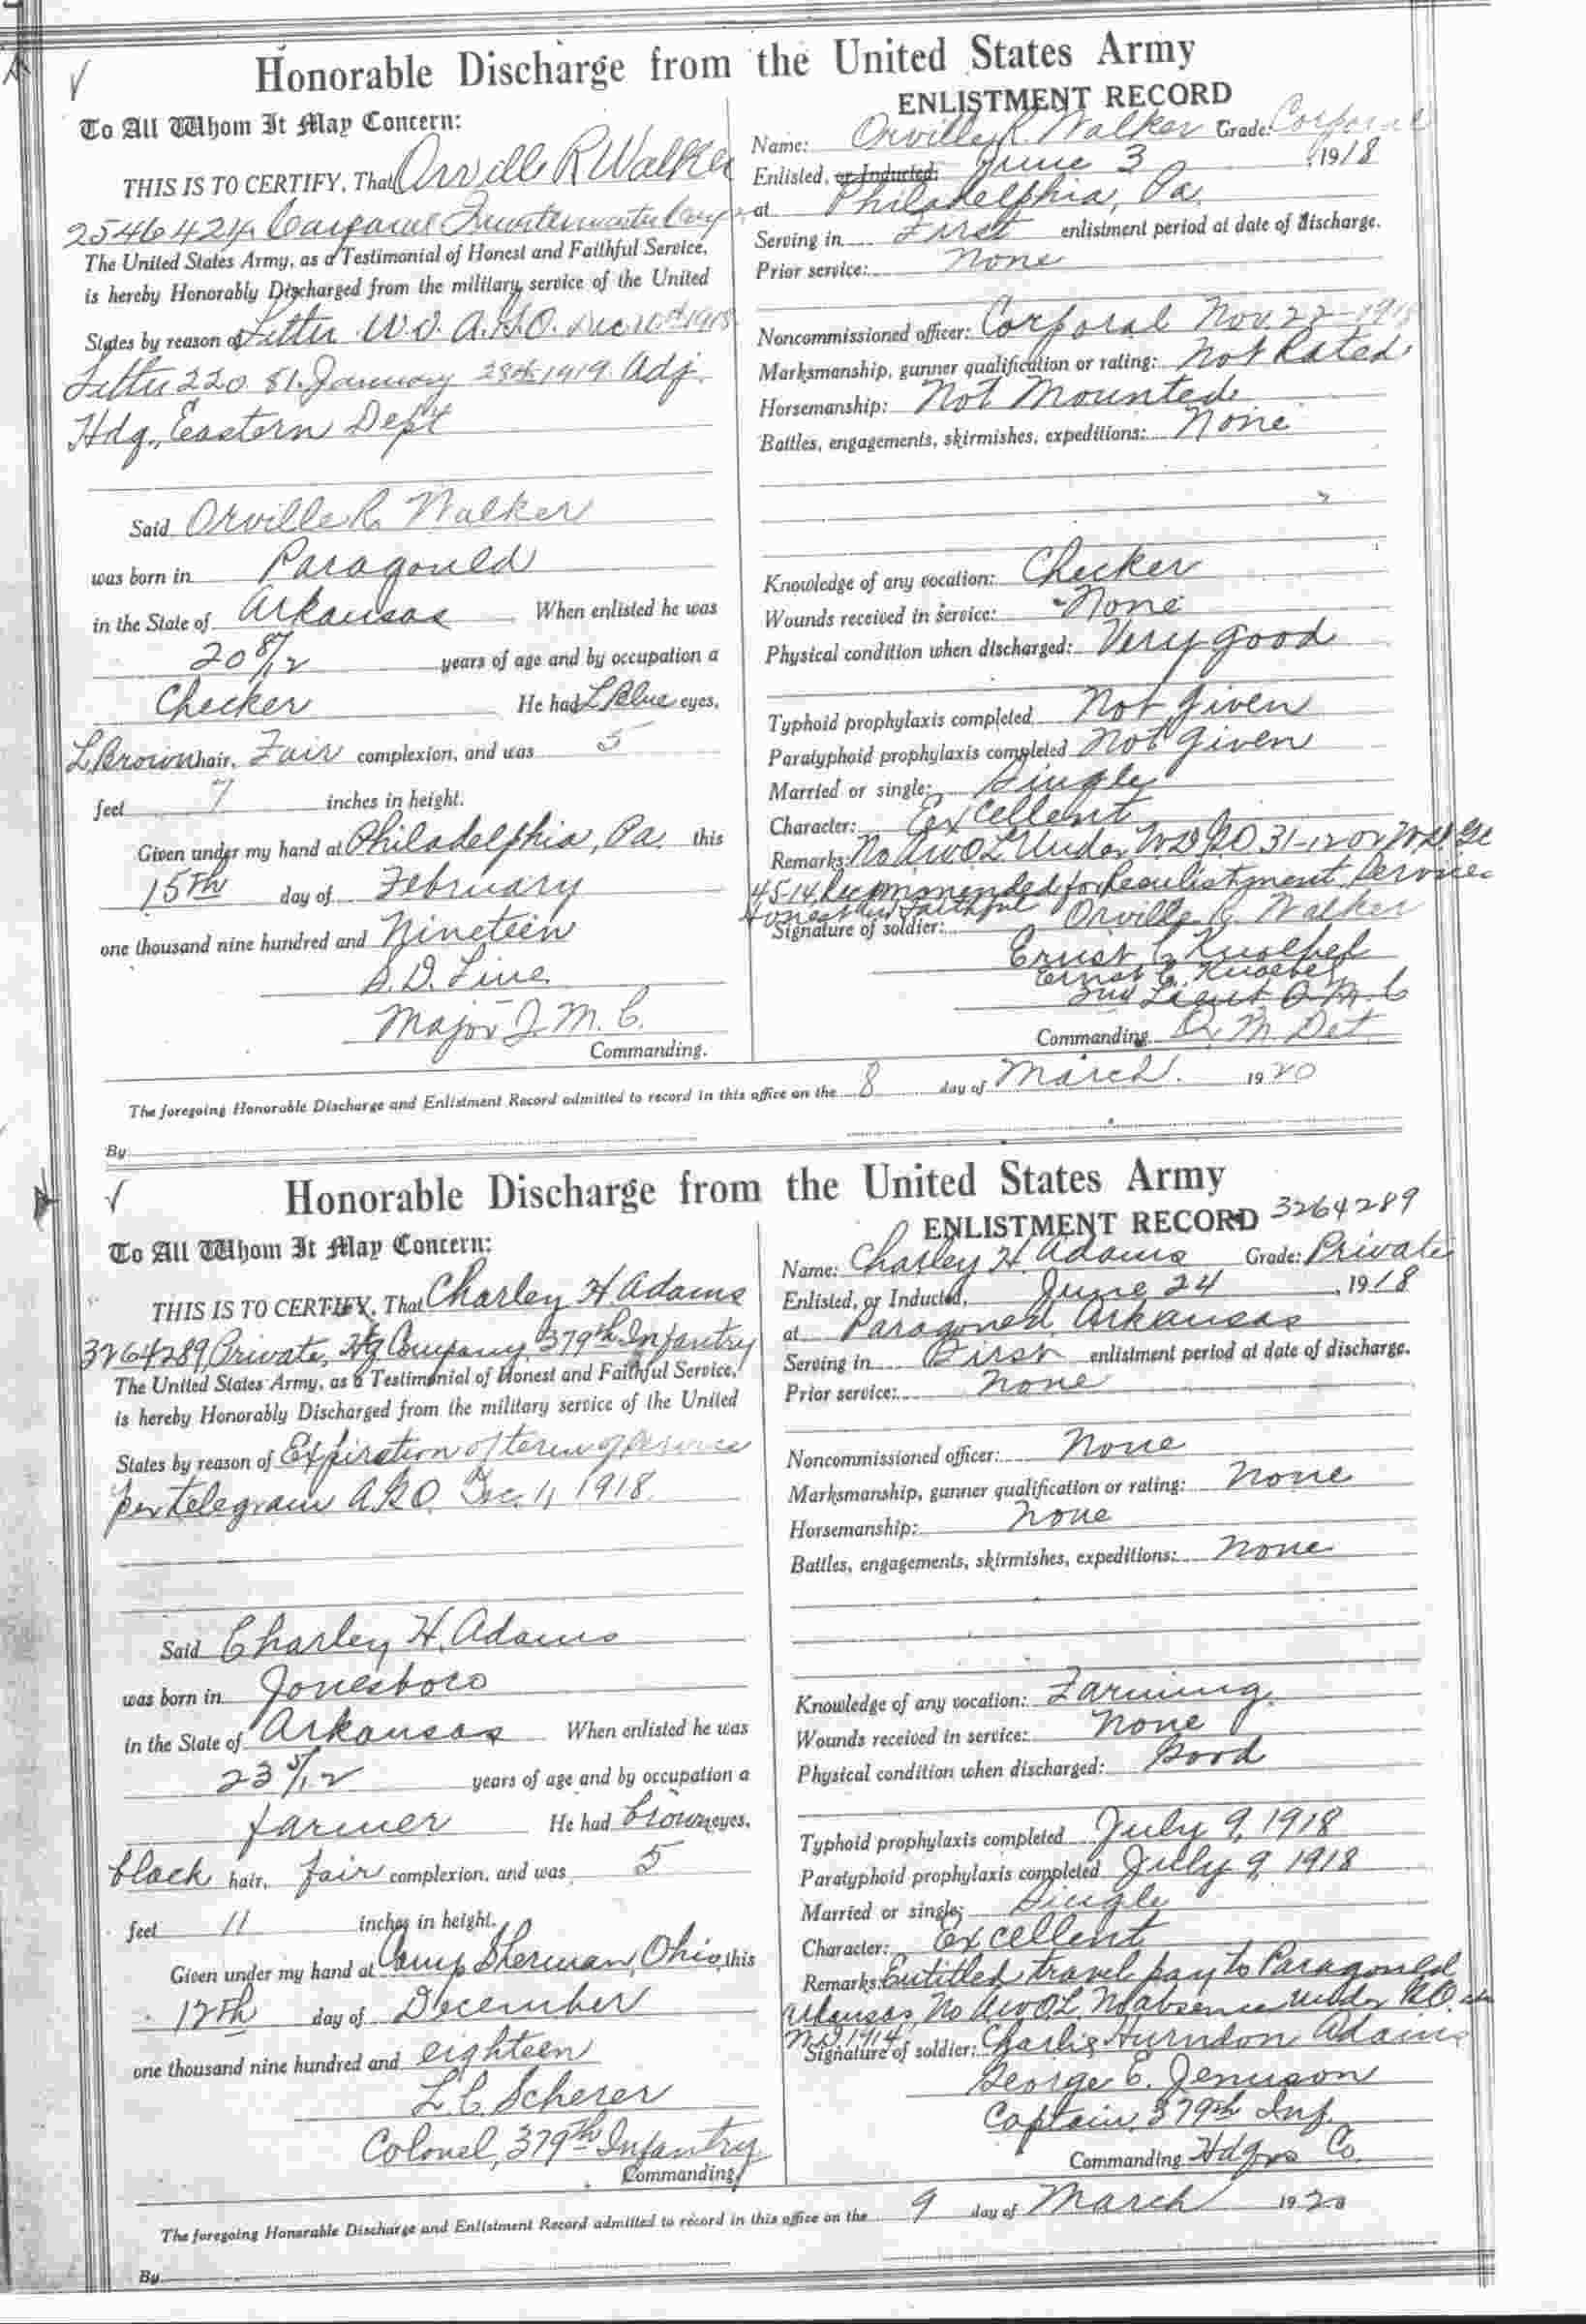 Honorable Discharge from the United States Army
To All Whom It May Concern:
THIS IS TO CERTIFY, That Orville R Walker
2546424 Corporal Quartermaster Corps
The United States Army, as a Testimonial of Honest and Faithful Service,
is hereby Honorably Discharged from the military service of the United
States by reason of Letter W.D. A.G.O. Dec 10th 1918
Letter 220 81. January 28th 1919. Adj.
Hdq., Eastern Dept
Said Orville R. Walker
was born in Paragould
in the State of Arkansas When enlisted he was
20 8/12 years of age and by occupation a
Checker He had L Blue eyes,
L Brown hair, Fair complexion, and was 5
feet 7 inches in height.
Given under my hand at Philadelphia, Pa. this
15th day of February
one thousand nine hundred and Nineteen
Major Q. M. C.
Commanding.
ENLISTMENT RECORD
Name: Orville R. Walker Grade: Corporal
Enlisted, or Inducted, June 3, 1918
at Philadelphia, Pa.
Serving in First enlistment period at date of discharge.
Prior service: None
Noncommissioned officer: Corporal Nov. 22-1918
Marksmanship, gunner qualification or rating: Not Rated
Horsemanship: Not Mounted
Battles, engagements, skirmishes, expeditions: None
Knowledge of any vocation: Checker
Wounds received in service: None
Physical condition when discharged: Very good
Typhoid prophylaxis completed Not given
Paratyphoid prophylaxis completed Not given
Married or single: Single
Character: Excellent
Remarks: No AWOL Under W.D. G.O 31-12 or W.D. Go
45-14 Recommended for Reenlistment Service
Honest and Faithful
Signature of soldier: Orville R. Walker
Ernst C. Knoebel
Ernst C. Knoebel
2nd Lieut Q.M.C
Commanding Q. M. Det.
The foregoing Honorable Discharge and Enlistment Record admitted to record in this office on the 8 day of March. 1920
By
Honorable Discharge from the United States Army
To All Whom It May Concern:
THIS IS TO CERTIFY, That Charley H. Adams
3264289 Private, Hq Company, 379th Infantry
The United States Army, as a Testimonial of Honest and Faithful Service,
is hereby Honorably Discharged from the military service of the United
States by reason of Expiration of term of service
per telegram A.G.O. Dec. 1, 1918
Said Charley H. Adams
was born in Jonesboro
in the State of Arkansas When enlisted he was
23 5/12 years of age and by occupation a
farmer He had brown eyes,
black hair, fair complexion, and was 5
feet 11 inches in height.
Given under my hand at Camp Sherman, Ohio, this
12th day of December
one thousand nine hundred and eighteen
L. C. Scherer
Colonel, 379th Infantry
Commanding
ENLISTMENT RECORD 3264289
Name: Charley H. Adams Grade: Private
Enlisted, or Inducted, June 24, 1918
at Paragoned, Arkansas
Serving in First enlistment period at date of discharge.
Prior service: None
Noncommissioned officer: None
Marksmanship, gunner qualification or rating: None
Horsemanship: None
Battles, engagements, skirmishes, expeditions: None
Knowledge of any vocation: Farming.
Wounds received in service: None
Physical condition when discharged: Good
Typhoid prophylaxis completed July 9, 1918
Paratyphoid prophylaxis completed July 9, 1918
Married or single: Single
Character: Excellent
Remarks: Entitled travel pay to Paragould
Arkansas, No AWOL No absence under G.O.
W.D 1914
Signature of soldier: Charlie Hurndon Adams
George E. Jenuson
Captain, 379th Inf.
Commanding Hdqrs Co.
The foregoing Honorable Discharge and Enlistment Record admitted to record in this office on the 9 day of March 1920
By